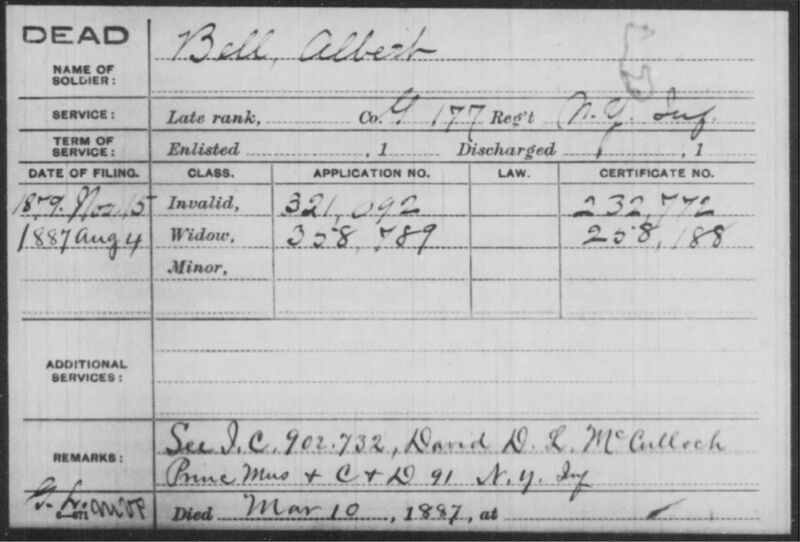 DEAD
Bell, Albert
NAME OF SOLDIER:
SERVICE: Late rank, Co. G 177 Reg't N.Y. Inf.
TERM OF SERVICE: Enlisted , 1 Discharged , 1
DATE OF FILING. CLASS. APPLICATION NO. LAW. CERTIFICATE NO.
1879. Nov. 15 Invalid, 321,092 232,772
1887 Aug 4 Widow, 358,789 258,188
Minor,
ADDITIONAL SERVICES:
REMARKS: See I.C. 902.732, David D. L. McCulloch
Princ Mus & C & D 91 N.Y. Inf
Died Mar 10, 1887, at
6—671